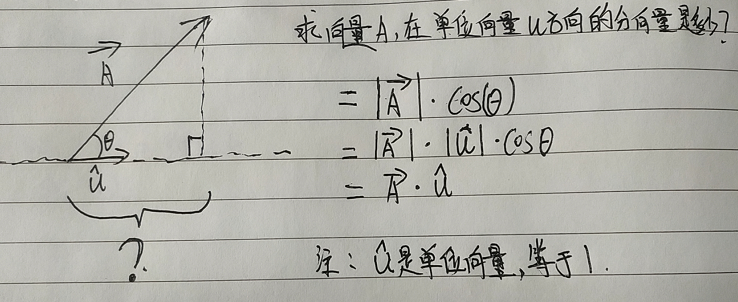 求向量A,在单位向量u方向的分向量是多少?
A
= |A|·cos(θ)
θ
= |A|·|û|·cosθ
û
= A·û
?
注:û是单位向量,等于1.